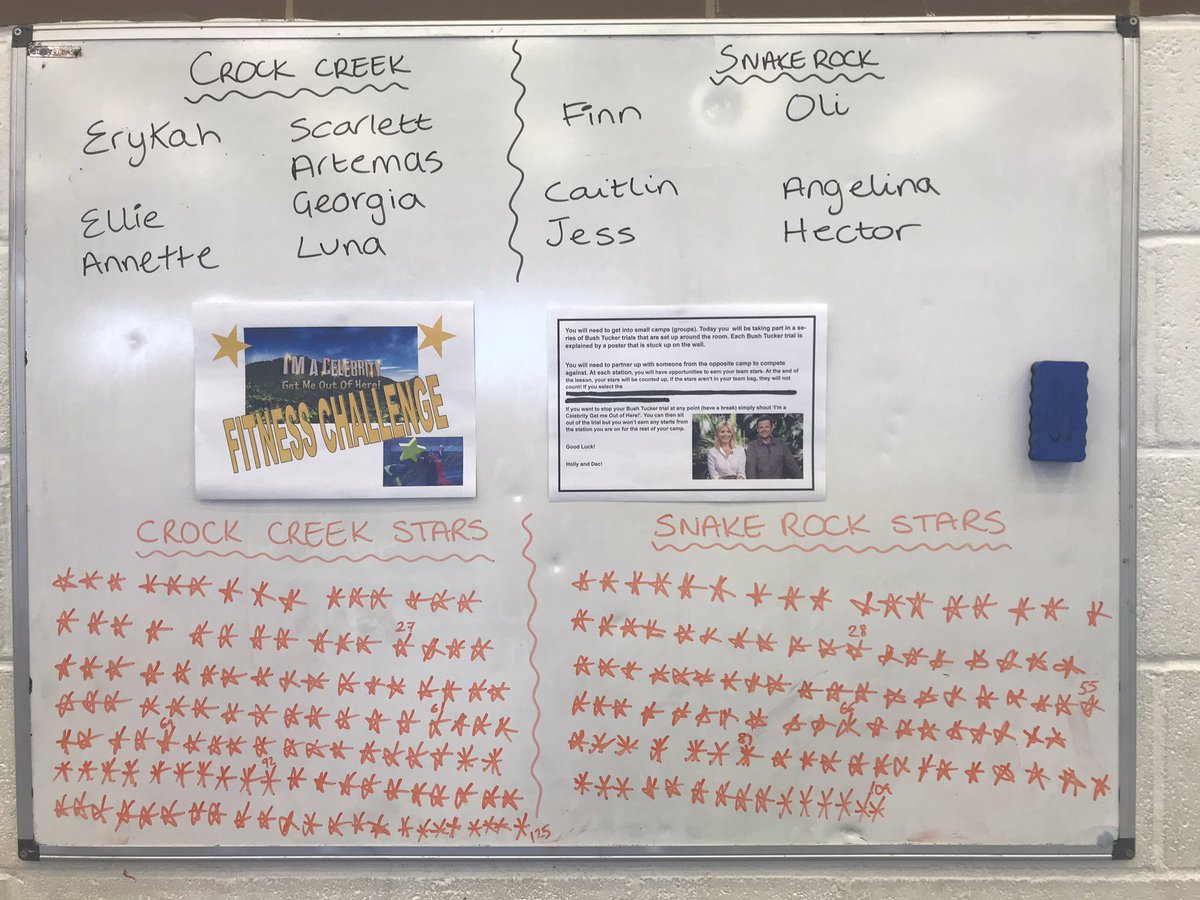 CROCK CREEK
Erykah
Scarlett
Artemas
Ellie
Georgia
Annette
Luna
SNAKE ROCK
Finn
Oli
Caitlin
Angelina
Jess
Hector
I'M A CELEBRITY
Get Me Out Of Here!
FITNESS CHALLENGE
You will need to get into small camps (groups). Today you will be taking part in a se-
ries of Bush Tucker trials that are set up around the room. Each Bush Tucker trial is
explained by a poster that is stuck up on the wall.
You will need to partner up with someone from the opposite camp to compete
against. At each station, you will have opportunities to earn your team stars. At the end of
the lesson, your stars will be counted up, if the stars aren't in your team bag, they will not
count! If you select the
If you want to stop your Bush Tucker trial at any point (have a break) simply shout 'I'm a
Celebrity Get me Out of Here!'. You can then sit
out of the trial but you won't earn any starts from
the station you are on for the rest of your camp.
Good Luck!
Holly and Dec!
CROCK CREEK STARS
27
61
69
92
125
SNAKE ROCK STARS
28
55
66
87
109